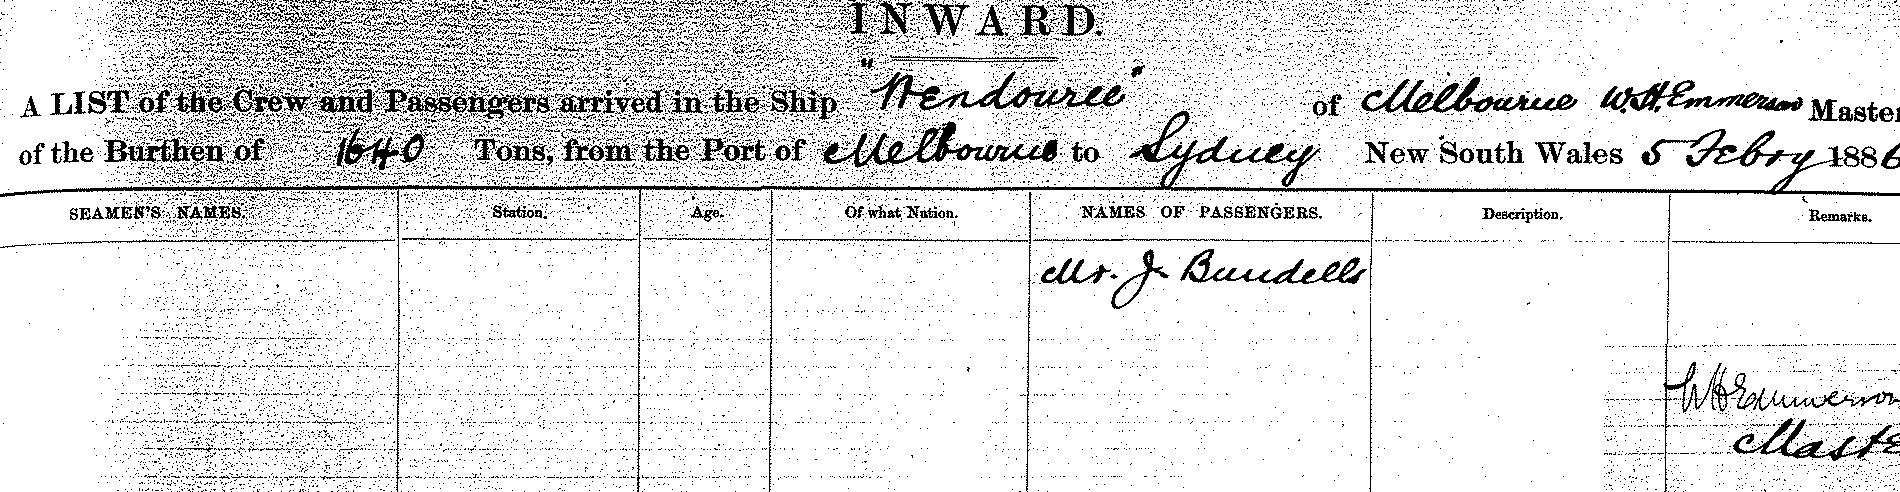 INWARD.
A LIST of the Crew and Passengers arrived in the Ship "Wendouree" of Melbourne W. H. Emmerson Master
of the Burthen of 1640 Tons, from the Port of Melbourne to Sydney New South Wales 5 Febry 1886
SEAMEN'S NAMES. Station. Age. Of what Nation. NAMES OF PASSENGERS. Description. Remarks.
Mr. J. Bundells
W H Emmerson
Maste